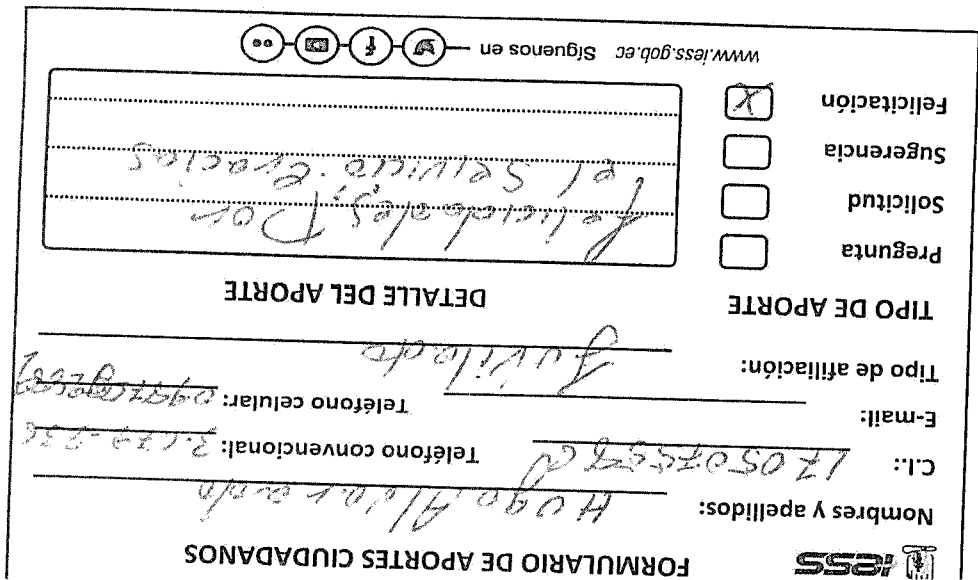 iess
FORMULARIO DE APORTES CIUDADANOS
Nombres y apellidos: Hugo Alvarado
C.I.:
Teléfono convencional:
E-mail:
Teléfono celular:
Tipo de afiliación: Juvilado
TIPO DE APORTE
DETALLE DEL APORTE
Pregunta
Solicitud
Sugerencia
Felicitación X
felicidades; Por
el Servicio. Gracias
www.iess.gob.ec Síguenos en